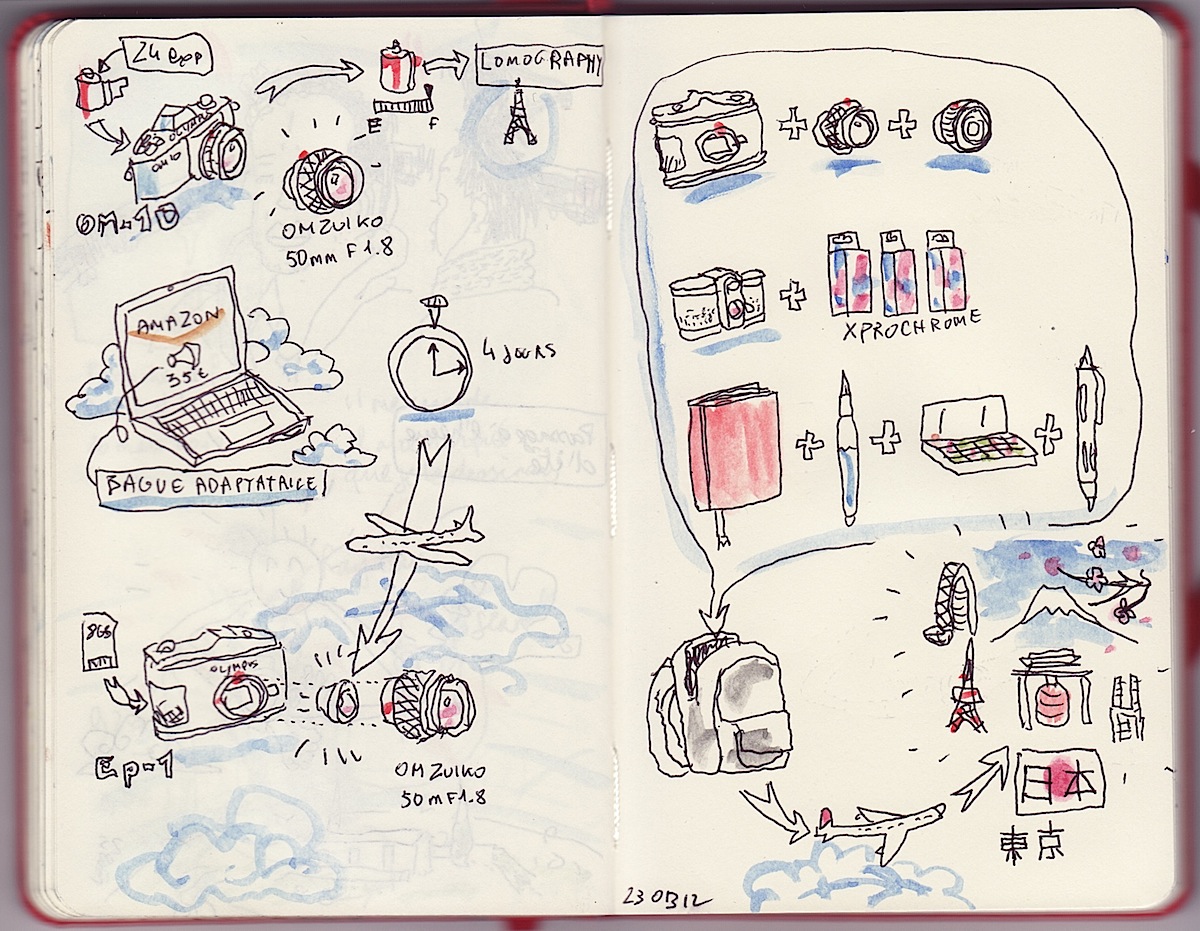 24 exp
LOMOGRAPHY
E F
OLYMPUS
OM-10
OM-10
OM ZUIKO
50mm F1.8
AMAZON
35€
4 JOURS
BAGUE ADAPTATRICE
8Gb
OLYMPUS
EP-1
OM ZUIKO
50m F1.8
XPROCHROME
日本
東京
23 03 12